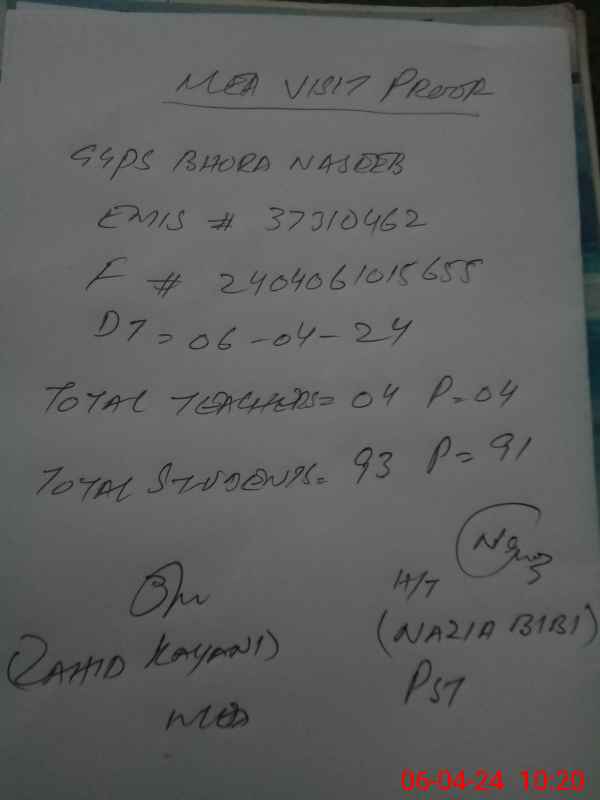 MEA VISIT PROOF
GGPS BHORA NASEEB
EMIS # 37310462
F # 2404061015655
DT = 06-04-24
TOTAL TEACHERS = 04 P = 04
TOTAL STUDENTS = 93 P = 91
H/T
(ZAHID KAYANI)
(NAZIA BIBI)
MEA
PST
06-04-24 10:20